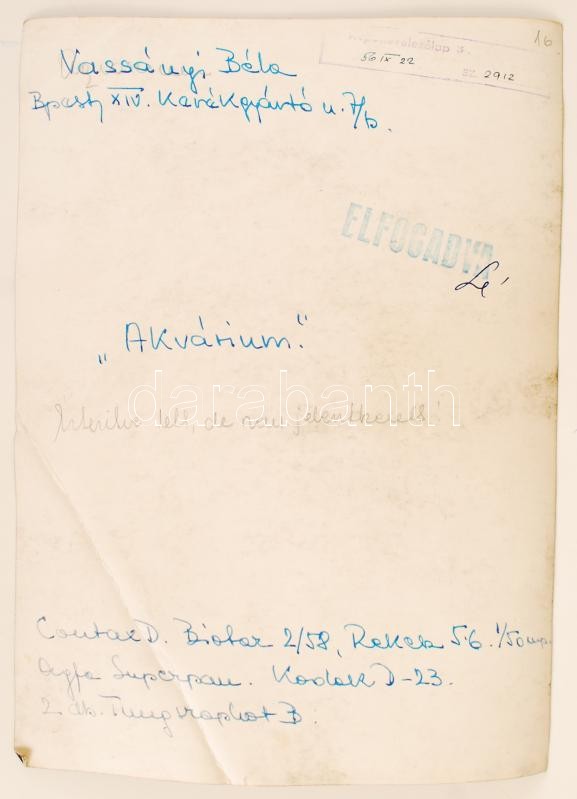 16
Képnevelezőlap 3.
56 IX 22
SZ. 2912
Vassányi Béla
Bpest, XIV. Kerékgyártó u. 7/b.
ELFOGADVA
Lé
„Akvárium."
darabanth
Értesitve lett, de nem jelentkezett!
Contax D. Biotar 2/58, Rekesz 5·6. 1/50 mp.
Agfa Superpan. Kodak D-23.
2 db. Tungraphot B.